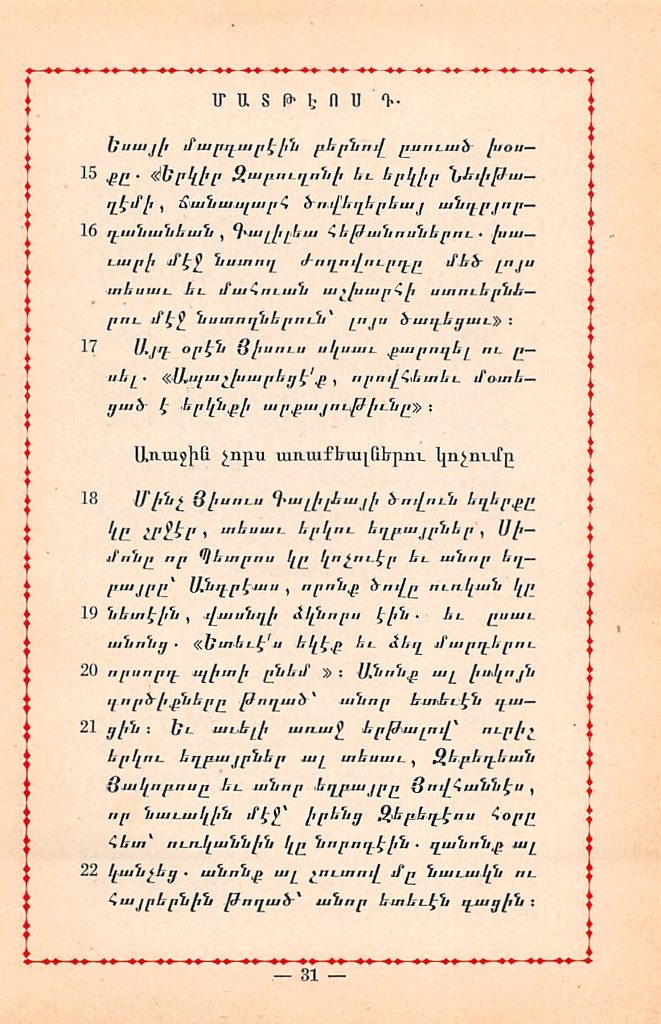 ՄԱՏԹԷՈՍ Դ.
Եսայի մարգարէին բերնով ըսուած խօս—
15 քը. «Երկիր Զաբուղոնի եւ երկիր Նեփթա—
ղէմի, ճանապարհ ծովեզերեայ անդրյոր—
16 դանանեան, Գալիլեա հեթանոսներու. խա—
ւարի մէջ նստող ժողովուրդը մեծ լոյս
տեսաւ եւ մահուան աշխարհի ստուերնե—
րու մէջ նստողներուն՝ լոյս ծագեցաւ»:
17 Այդ օրէն Յիսուս սկսաւ քարոզել ու ը—
սել. «Ապաշխարեցէ՛ք, որովհետեւ մօտե—
ցած է երկնքի արքայութիւնը»:
Առաջին չորս առաքեալներու կոչումը
18 Մինչ Յիսուս Գալիլեայի ծովուն եզերքը
կը շրջէր, տեսաւ երկու եղբայրներ, Սի—
մոնը որ Պետրոս կը կոչուէր եւ անոր եղ—
բայրը՝ Անդրէաս, որոնք ծովը ուռկան կը
19 նետէին, վասնզի ձկնորս էին. եւ ըսաւ
անոնց. «Ետեւէ՛ս եկէք եւ ձեզ մարդերու
20 որսորդ պիտի ընեմ »: Անոնք ալ իսկոյն
գործիքները թողած՝ անոր ետեւէն գա—
21 ցին: Եւ աւելի առաջ երթալով՝ ուրիշ
երկու եղբայրներ ալ տեսաւ, Զեբեդեան
Յակոբոսը եւ անոր եղբայրը Յովհաննէս,
որ նաւակին մէջ՝ իրենց Զեբեդէոս հօրը
հետ՝ ուռկաննին կը նորոգէին. զանոնք ալ
22 կանչեց. անոնք ալ շուտով մը նաւակն ու
հայրերնին թողած՝ անոր ետեւէն գացին:
— 31 —